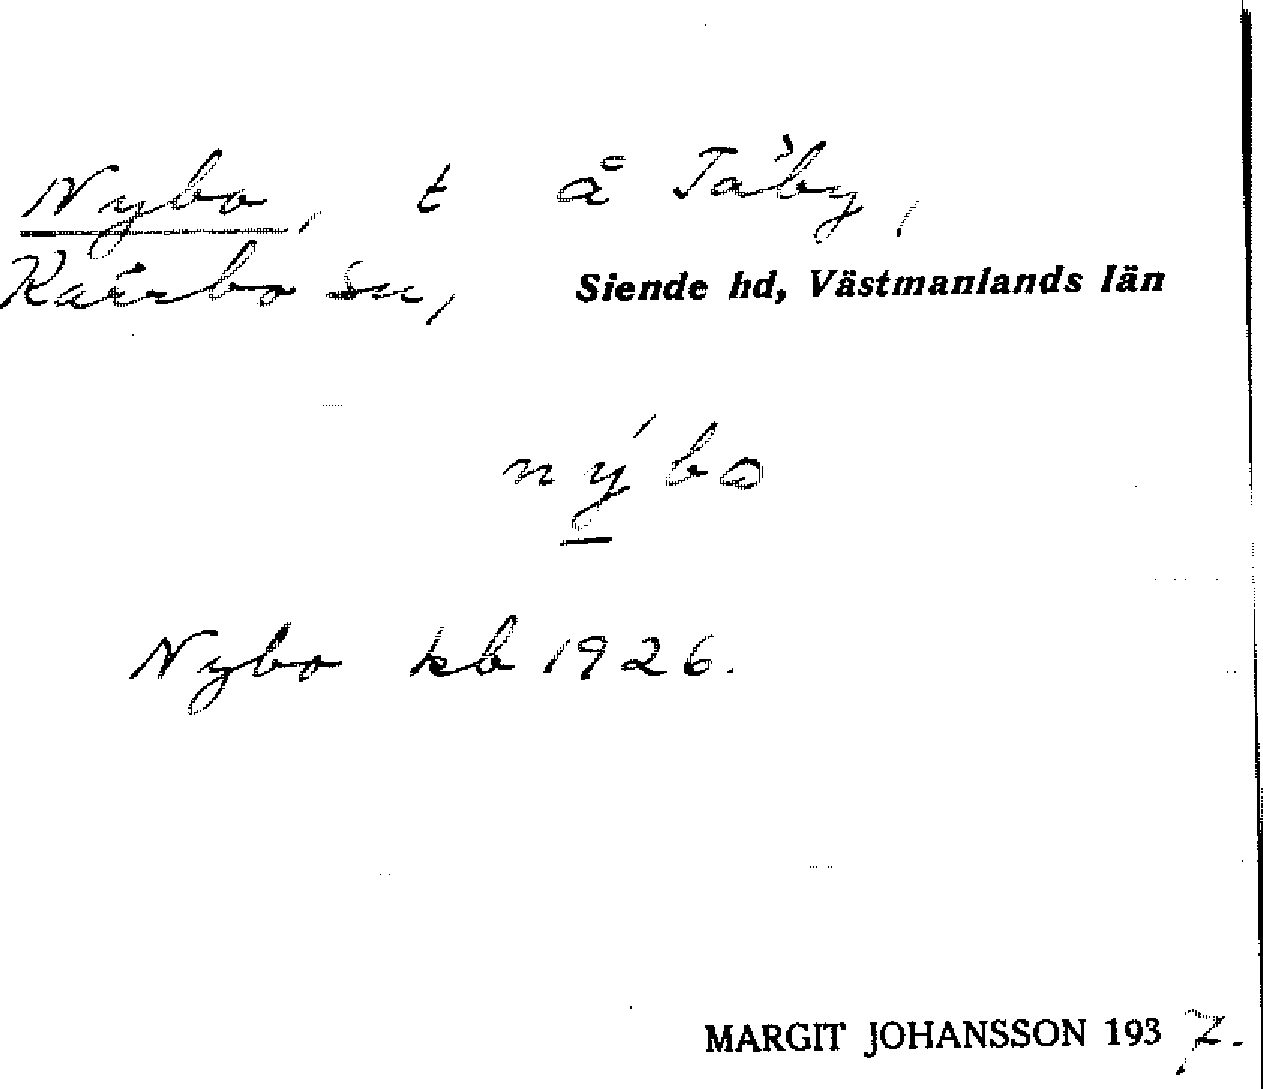 Nybo, t å Täby,
Kärrbo sn, Siende hd, Västmanlands län
nýbo
Nybo kb 1926.
MARGIT JOHANSSON 1937.